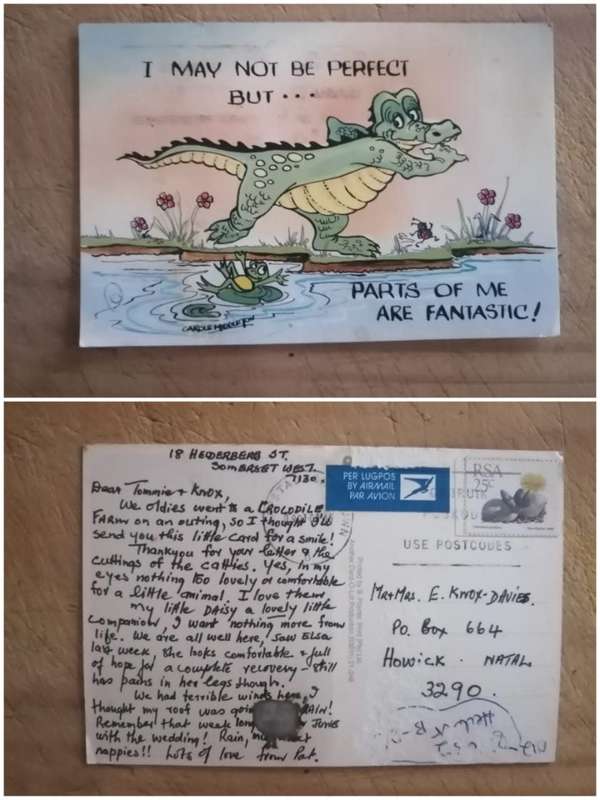 I MAY NOT BE PERFECT
BUT...
PARTS OF ME
ARE FANTASTIC!
CAROLE MIDDLETON
18 HELDERBERG ST.
SOMERSET WEST.
7130.
Dear Tommie + Knox,
We oldies went to a CROCODILE
FARM on an outing, so I thought I'd
send you this little card for a smile!
Thankyou for your letter & the
cuttings of the catties. Yes, in my
eyes nothing too lovely or comfortable
for a little animal. I love them,
my little DAISY a lovely little
companion, I want nothing more from
life. We are all well here, saw ELSA
last week, she looks comfortable & full
of hope for a complete recovery - still
has pains in her legs though.
We had terrible winds here, I
thought my roof was AGAIN!
Remember that week JUNES
with the wedding! Rain,
nappies!! Lots of love from Pat.
PER LUGPOS
BY AIRMAIL
PAR AVION
RSA
25c
USE POSTCODES
Mr + Mrs. E. KNOX-DAVIES.
P.O. Box 664
HOWICK. NATAL
3290.